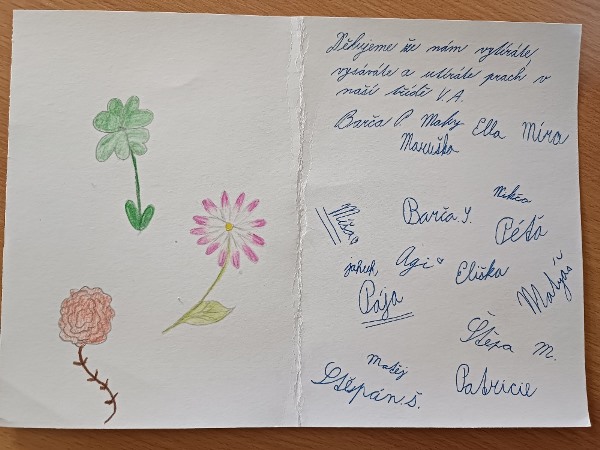 Děkujeme že nám vytíráte,
vysáváte a utíráte prach v
naší třídě V.A.
Barča P. Maky Ella Míra
Maruška
Nikča
Míša Barča Y. Péťa
jakub, Agi Eliška Matyáš
Pája
Štěpa M.
Matěj
Štěpán.Š. Patricie